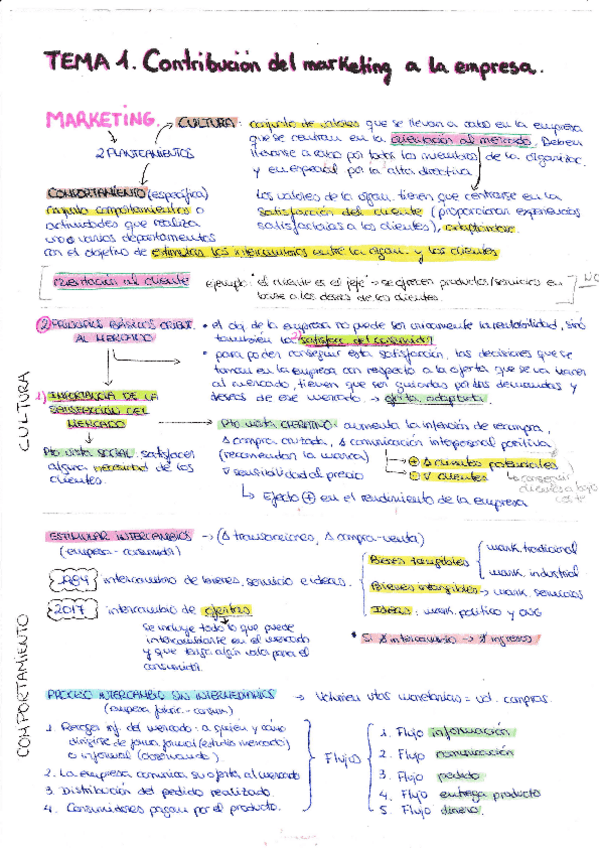 TEMA 1. Contribución del marketing a la empresa.
MARKETING. → CULTURA: conjunto de valores que se llevan a cabo en la empresa
que se centran en la orientación al mercado. Deben
2 PLANTEAMIENTOS
llevarse a cabo por todos los miembros de la organizac.
y en especial por la alta directiva
COMPORTAMIENTO (específica)
conjunto comportamientos o
actividades que realiza
uno o varios departamentos
con el objetivo de estimular los intercambios entre la organ. y los clientes
Los valores de la organ. tienen que centrarse en la
satisfacción del cliente (proporcionar experiencias
satisfactorias a los clientes), adaptándose.
orientación al cliente ejemplo: "el cliente es el jefe" → se ofrecen productos/servicios en
base a los deseos de los clientes.
NO
CULTURA
2) PRINCIPIOS BÁSICOS ORIENT.
AL MERCADO
• el obj. de la empresa no puede ser únicamente la rentabilidad, sinó
también la satisfacc. del consumid.
• para poder conseguir esta satisfacción, las decisiones que se
toman en la empresa con respecto a la oferta que se va a
al mercado, tienen que ser guiadas por las demandas y
deseos de ese mercado. → oferta adaptada.
1) IMPORTANCIA DE LA
SATISFACCIÓN DEL
MERCADO
Pto vista SOCIAL: satisfacer
alguna necesidad de los
clientes.
Pto vista: aumenta la intención de recompra,
Δ compra cruzada, Δ comunicación interpersonal positiva
(recomiendan la marca)
∇ sensibilidad al precio
⊕ Δ clientes potenciales
∇ clientes
↳ conseguir
clientes a largo
↳ Efecto ⊕ en el rendimiento de la empresa
COMPORTAMIENTO
ESTIMULAR INTERCAMBIOS → (Δ transacciones, Δ compra-venta)
(empresa - consumid.)
intercambio de bienes, servicio e ideas.
Bienes tangibles
mark. tradicional
mark. industrial
Bienes intangibles → mark. servicios
Ideas: mark. político y ONG
2017 intercambio de ofertas
se incluye todo lo que puede
intercambiarse en el mercado
y que tenga algún valor para el
consumid.
* Si intercambio → ingresos
PROCESO INTERCAMBIO SIN INTERMEDIARIOS → Volumen vtas monetarias = vol. compras.
(empresa fabric. - consum.)
1. Recoger inf. del mercado: a quién y cómo
dirigirse de forma formal (estudio mercado)
o informal (observando)
2. La empresa comunica su oferta al mercado
3. Distribución del pedido realizado.
4. Consumidores pagan por el producto.
Flujos
1. Flujo información
2. Flujo comunicación
3. Flujo pedido
4. Flujo entrega producto
5. Flujo dinero.